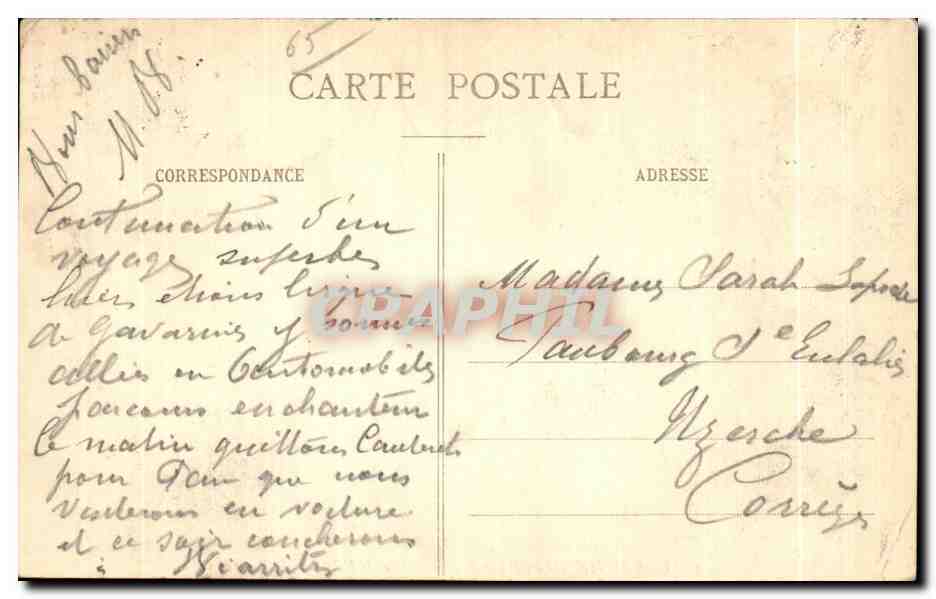 65
CARTE POSTALE
CORRESPONDANCE
ADRESSE
Continuation d'un
voyage superbe
hier étions
de Gavarnie y sommes
allées en automobiles
parcours enchanteur
Ce matin quittons Cauterets
pour Pau que nous
visiterons en voiture
et ce soir coucherons
à Biarritz
Bons baisers
M. N.
Madame Sarah
Faubourg Ste Eulalie
Uzerche
Corrèze
CPAPHIL